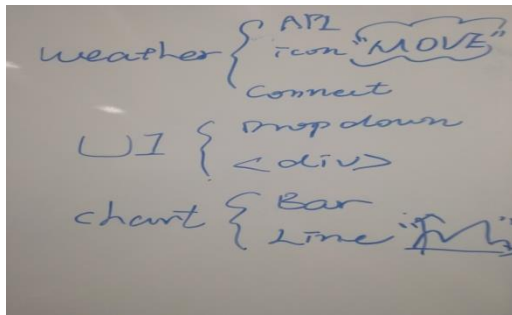 weather { API
icon "MOVE"
connect
UI { Dropdown
<div>
chart { Bar
Line